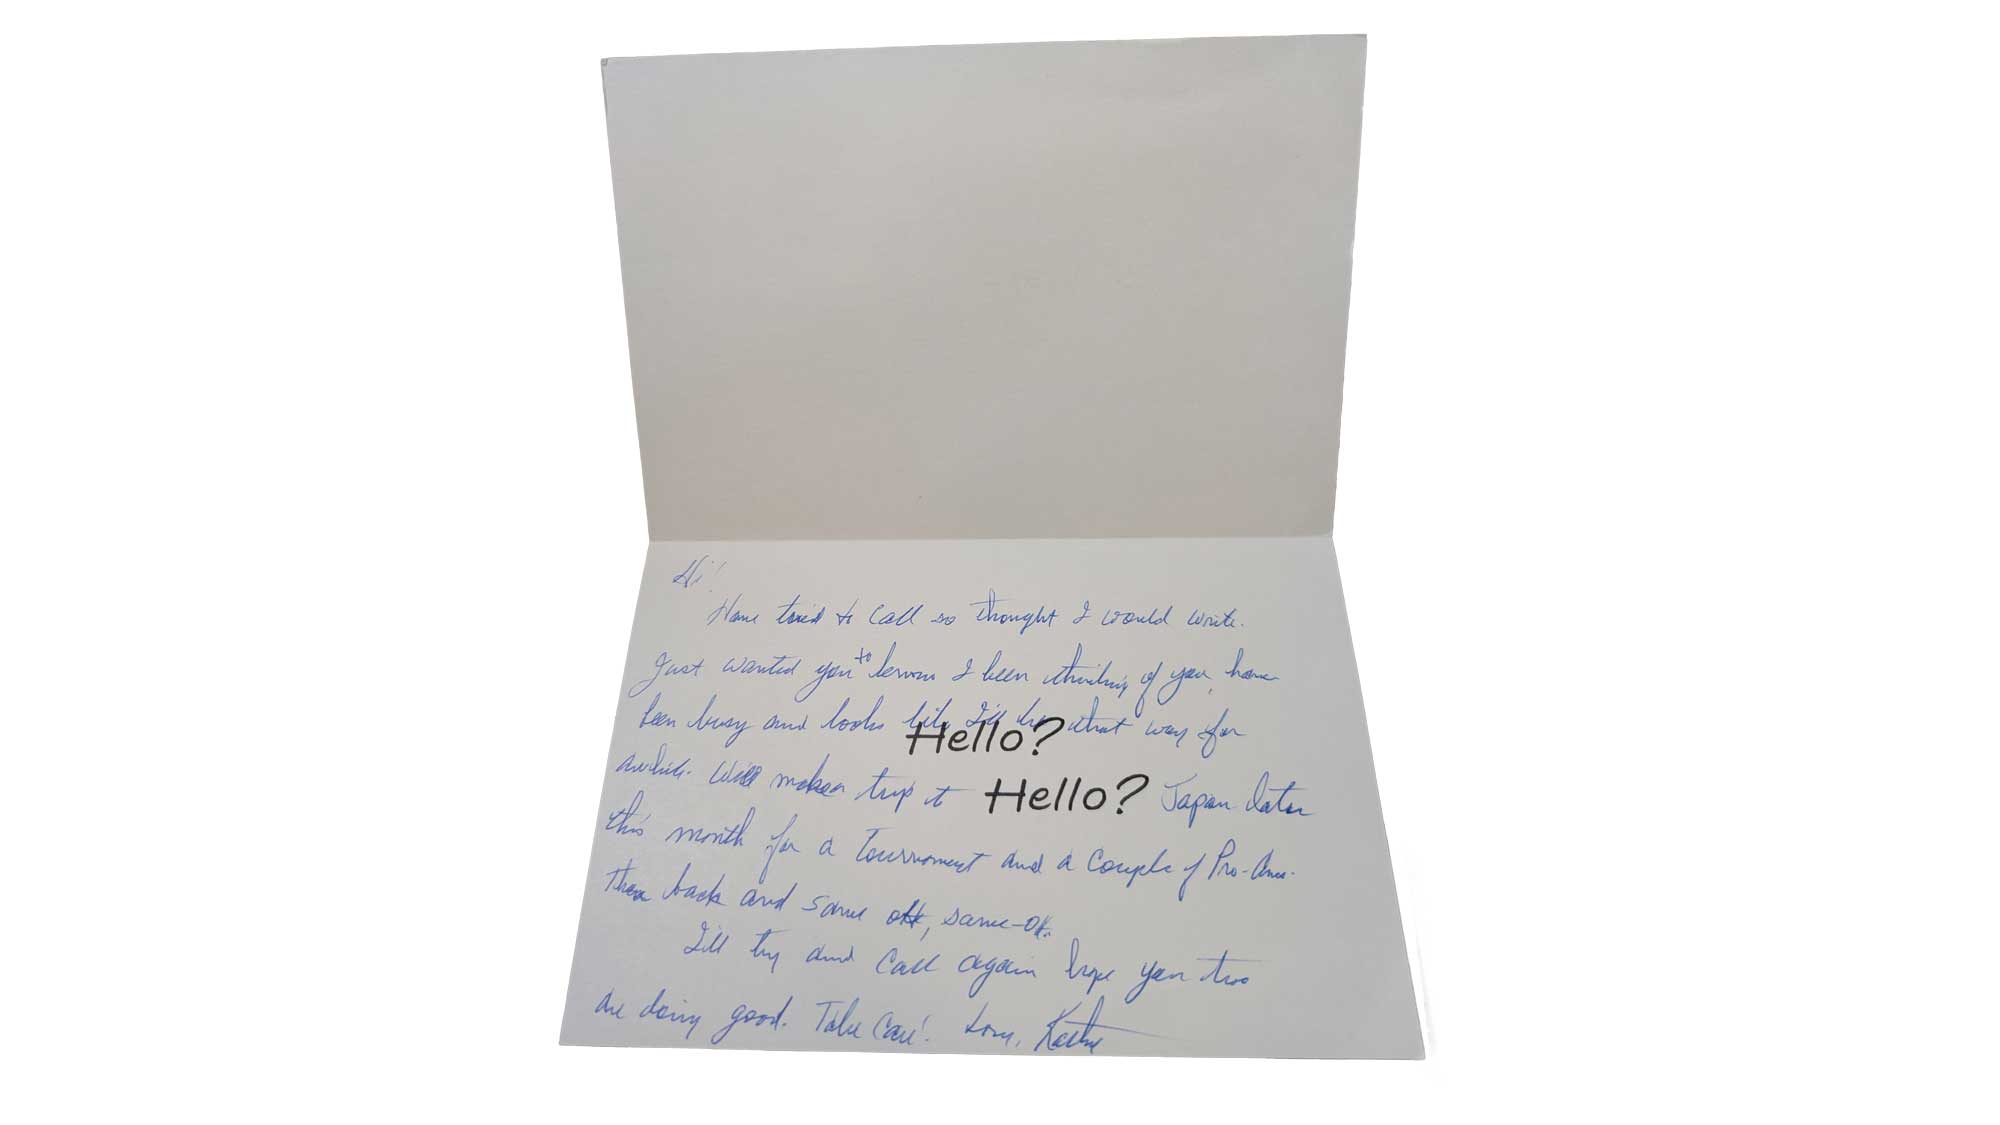 Hi!
Have tried to call so thought I would write.
Just wanted you to know I been thinking of you, have
been busy and looks like I'll be that way for
Hello?
awhile. Will make a trip to Japan later
Hello?
this month for a Tournament and a couple of Pro-Ams.
Then back and same old, same-old.
I'll try and call again hope you two
are doing good. Take Care! Love, Kathy